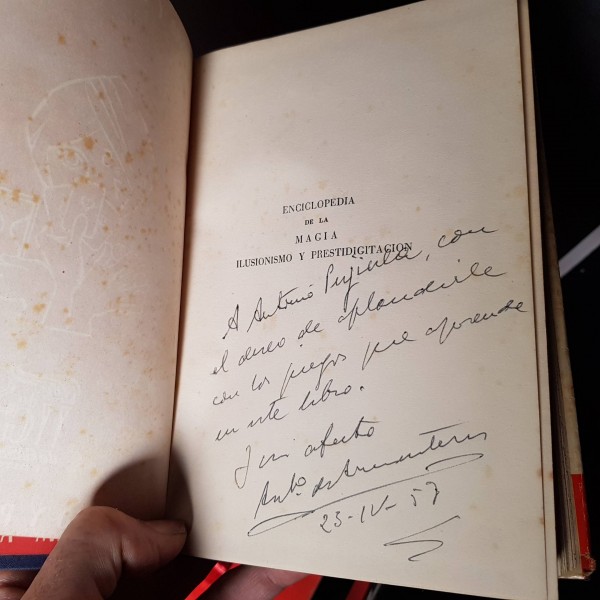 ENCICLOPEDIA
DE LA
MAGIA
ILUSIONISMO Y PRESTIDIGITACION
A Antonio Pujiula, con
el deseo de aplaudirle
con los juegos que aprenda
en este libro.
y mi afecto
Antº de Armenteras
23-IV-57